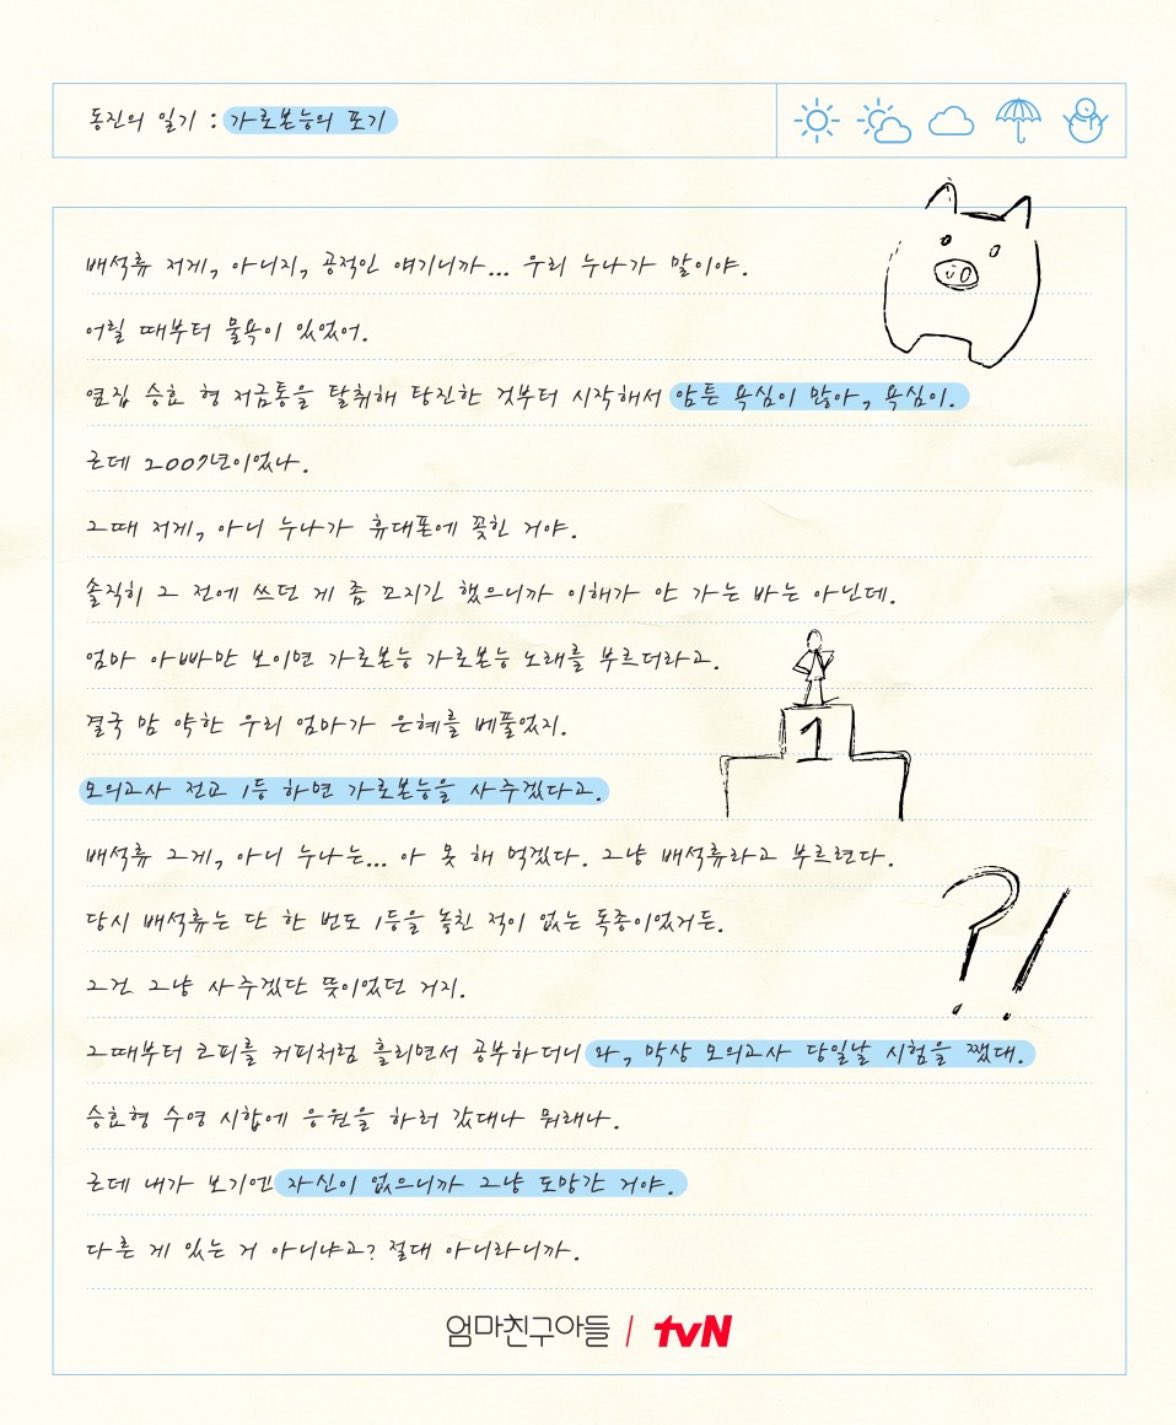 동진의 일기 : 가로본능의 포기
배석류 저게, 아니지, 공적인 얘기니까... 우리 누나가 말이야.
어릴 때부터 물욕이 있었어.
옆집 승효 형 저금통을 탈취해 탕진한 것부터 시작해서 암튼 욕심이 많아, 욕심이.
근데 2009년이었나.
그때 저게, 아니 누나가 휴대폰에 꽂힌 거야.
솔직히 그 전에 쓰던 게 좀 꼬지긴 했으니까 이해가 안 가는 바는 아닌데.
엄마 아빠만 보이면 가로본능 가로본능 노래를 부르더라고.
결국 맘 약한 우리 엄마가 은혜를 베풀었지.
모의고사 전교 1등 하면 가로본능을 사주겠다고.
배석류 그게, 아니 누나는... 아 못 해 먹겠다. 그냥 배석류라고 부르련다.
당시 배석류는 단 한 번도 1등을 놓친 적이 없는 독종이었거든.
그건 그냥 사주겠단 뜻이었던 거지.
그때부터 코피를 커피처럼 흘리면서 공부하더니 와, 막상 모의고사 당일날 시험을 쨌대.
승효형 수영 시합에 응원을 하러 갔대나 뭐래나.
근데 내가 보기엔 자신이 없으니까 그냥 도망간 거야.
다른 게 있는 거 아니냐고? 절대 아니라니까.
1
?!
엄마친구아들 / tvN